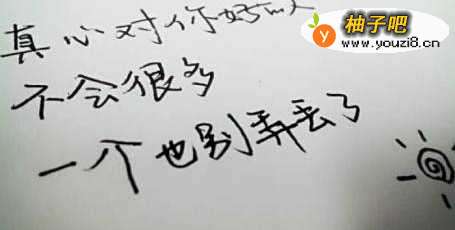 真心对你好的人
不会很多
一个也别弄丢了
柚子吧
www.youzi8.cn